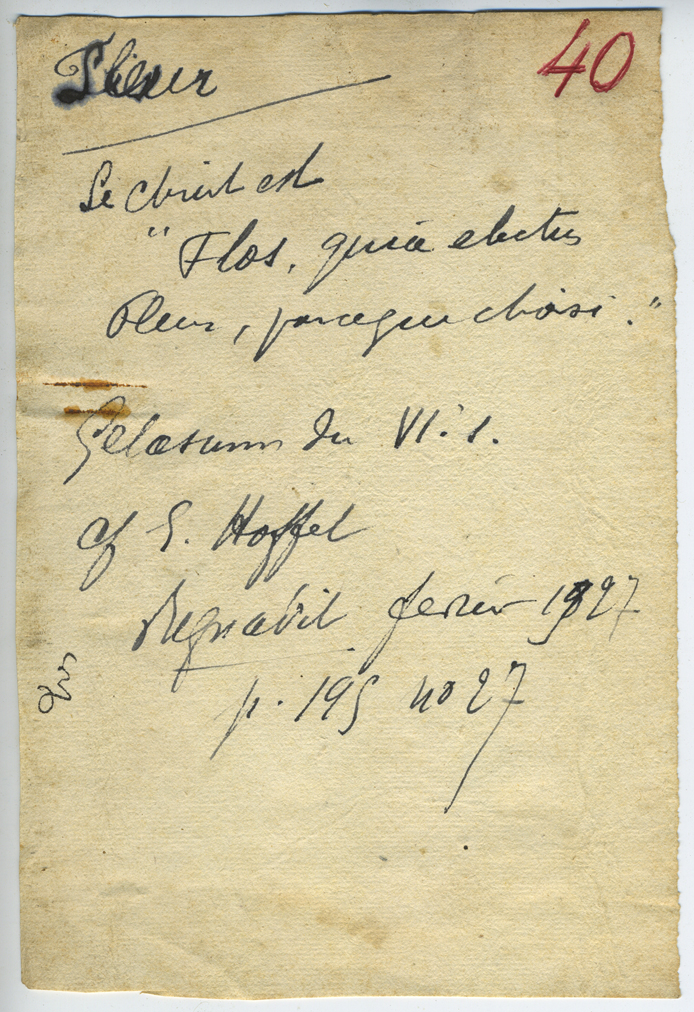 Fleur
40
Le Christ est
"Flos, quia electus
fleur, parceque choisi."
Gelasum du VI. s.
cf G. Hoffet
Regnabit fevrier 1927
p. 195 no 27